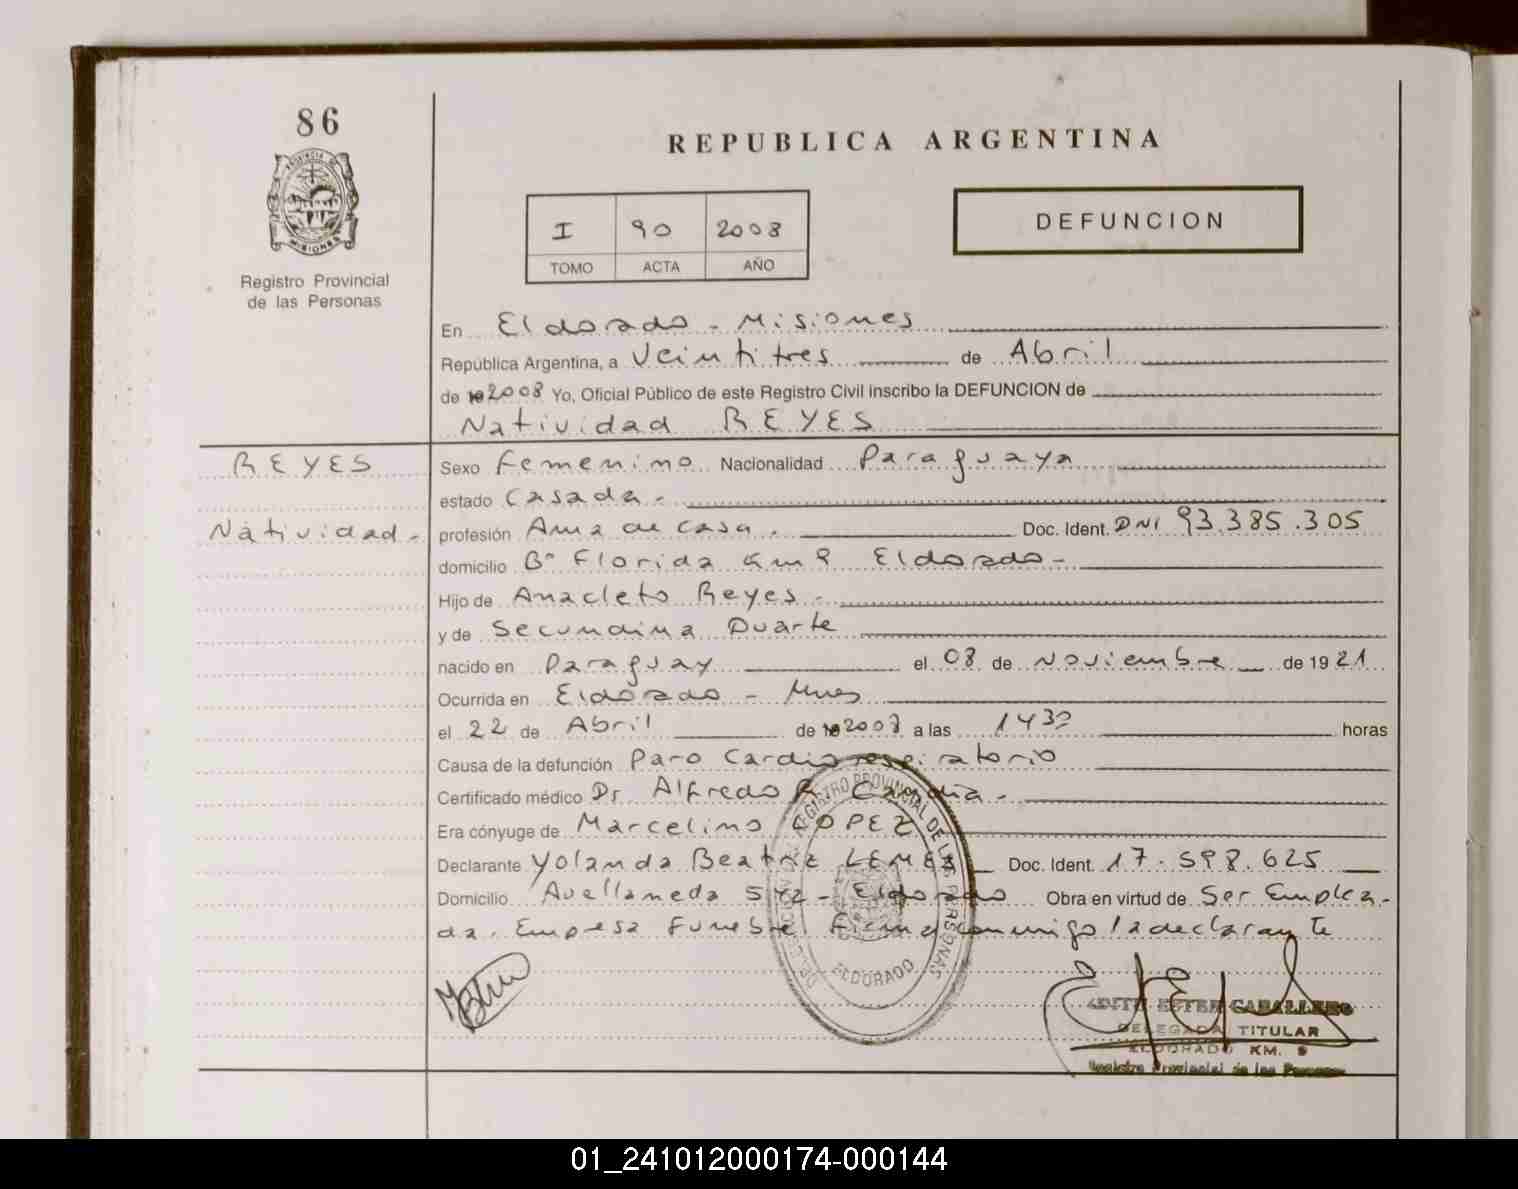 86
REPUBLICA ARGENTINA
PROVINCIA DE
MISIONES
Registro Provincial
de las Personas
I 90 2008
TOMO ACTA AÑO
DEFUNCION
En Eldorado - Misiones
República Argentina, a Veintitres de Abril
de 2008 Yo, Oficial Público de este Registro Civil inscribo la DEFUNCION de
Natividad REYES
REYES
Natividad -
Sexo Femenino Nacionalidad Paraguaya
estado Casada -
profesión Ama de casa - Doc. Ident. DNI 93.385.305
domicilio B° Florida Km 9 Eldorado -
Hijo de Anacleto Reyes -
y de Secundina Duarte
nacido en Paraguay el 08 de Noviembre de 1921
Ocurrida en Eldorado - Mnes
el 22 de Abril de 2008 a las 14 30 horas
Causa de la defunción Paro Cardiorespiratorio
Certificado médico Dr Alfredo R -
Era cónyuge de Marcelino LOPEZ
Declarante Yolanda Beatriz LEMES Doc. Ident. 17.598.625
Domicilio Avellaneda - Eldorado Obra en virtud de Ser Emplea-
da. Empresa Funebre Firma conmigo la declarante
REGISTRO PROVINCIAL DE LAS PERSONAS
ELDORADO
EDITH ESTER CABALLERO
DELEGADA TITULAR
ELDORADO KM. 9
Registro Provincial de las Personas
01_241012000174-000144